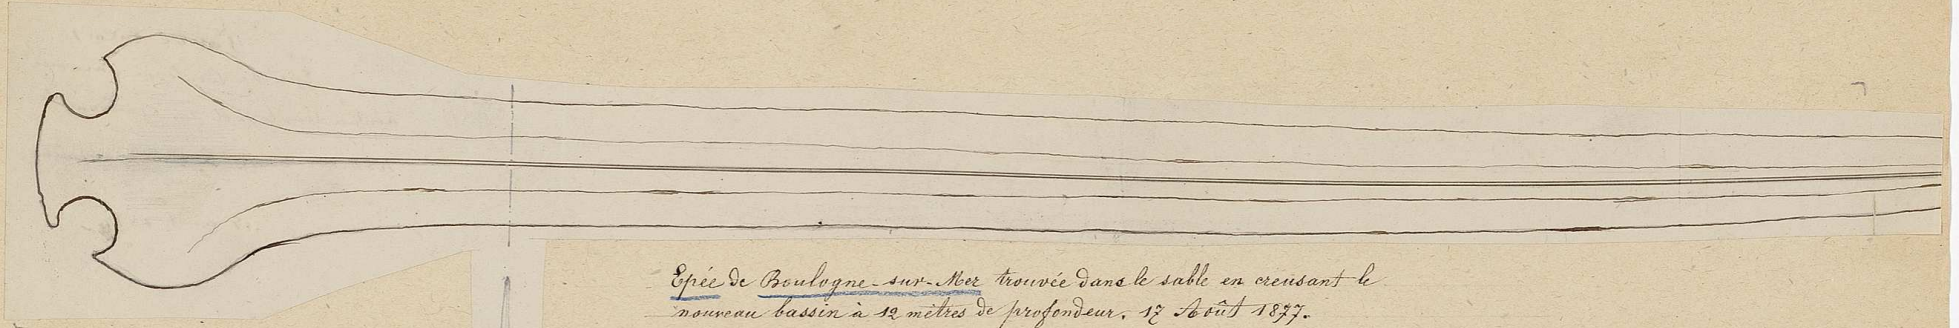 Epée de Boulogne-sur-Mer trouvée dans le sable en creusant le
nouveau bassin à 12 mètres de profondeur. 17 Août 1877.